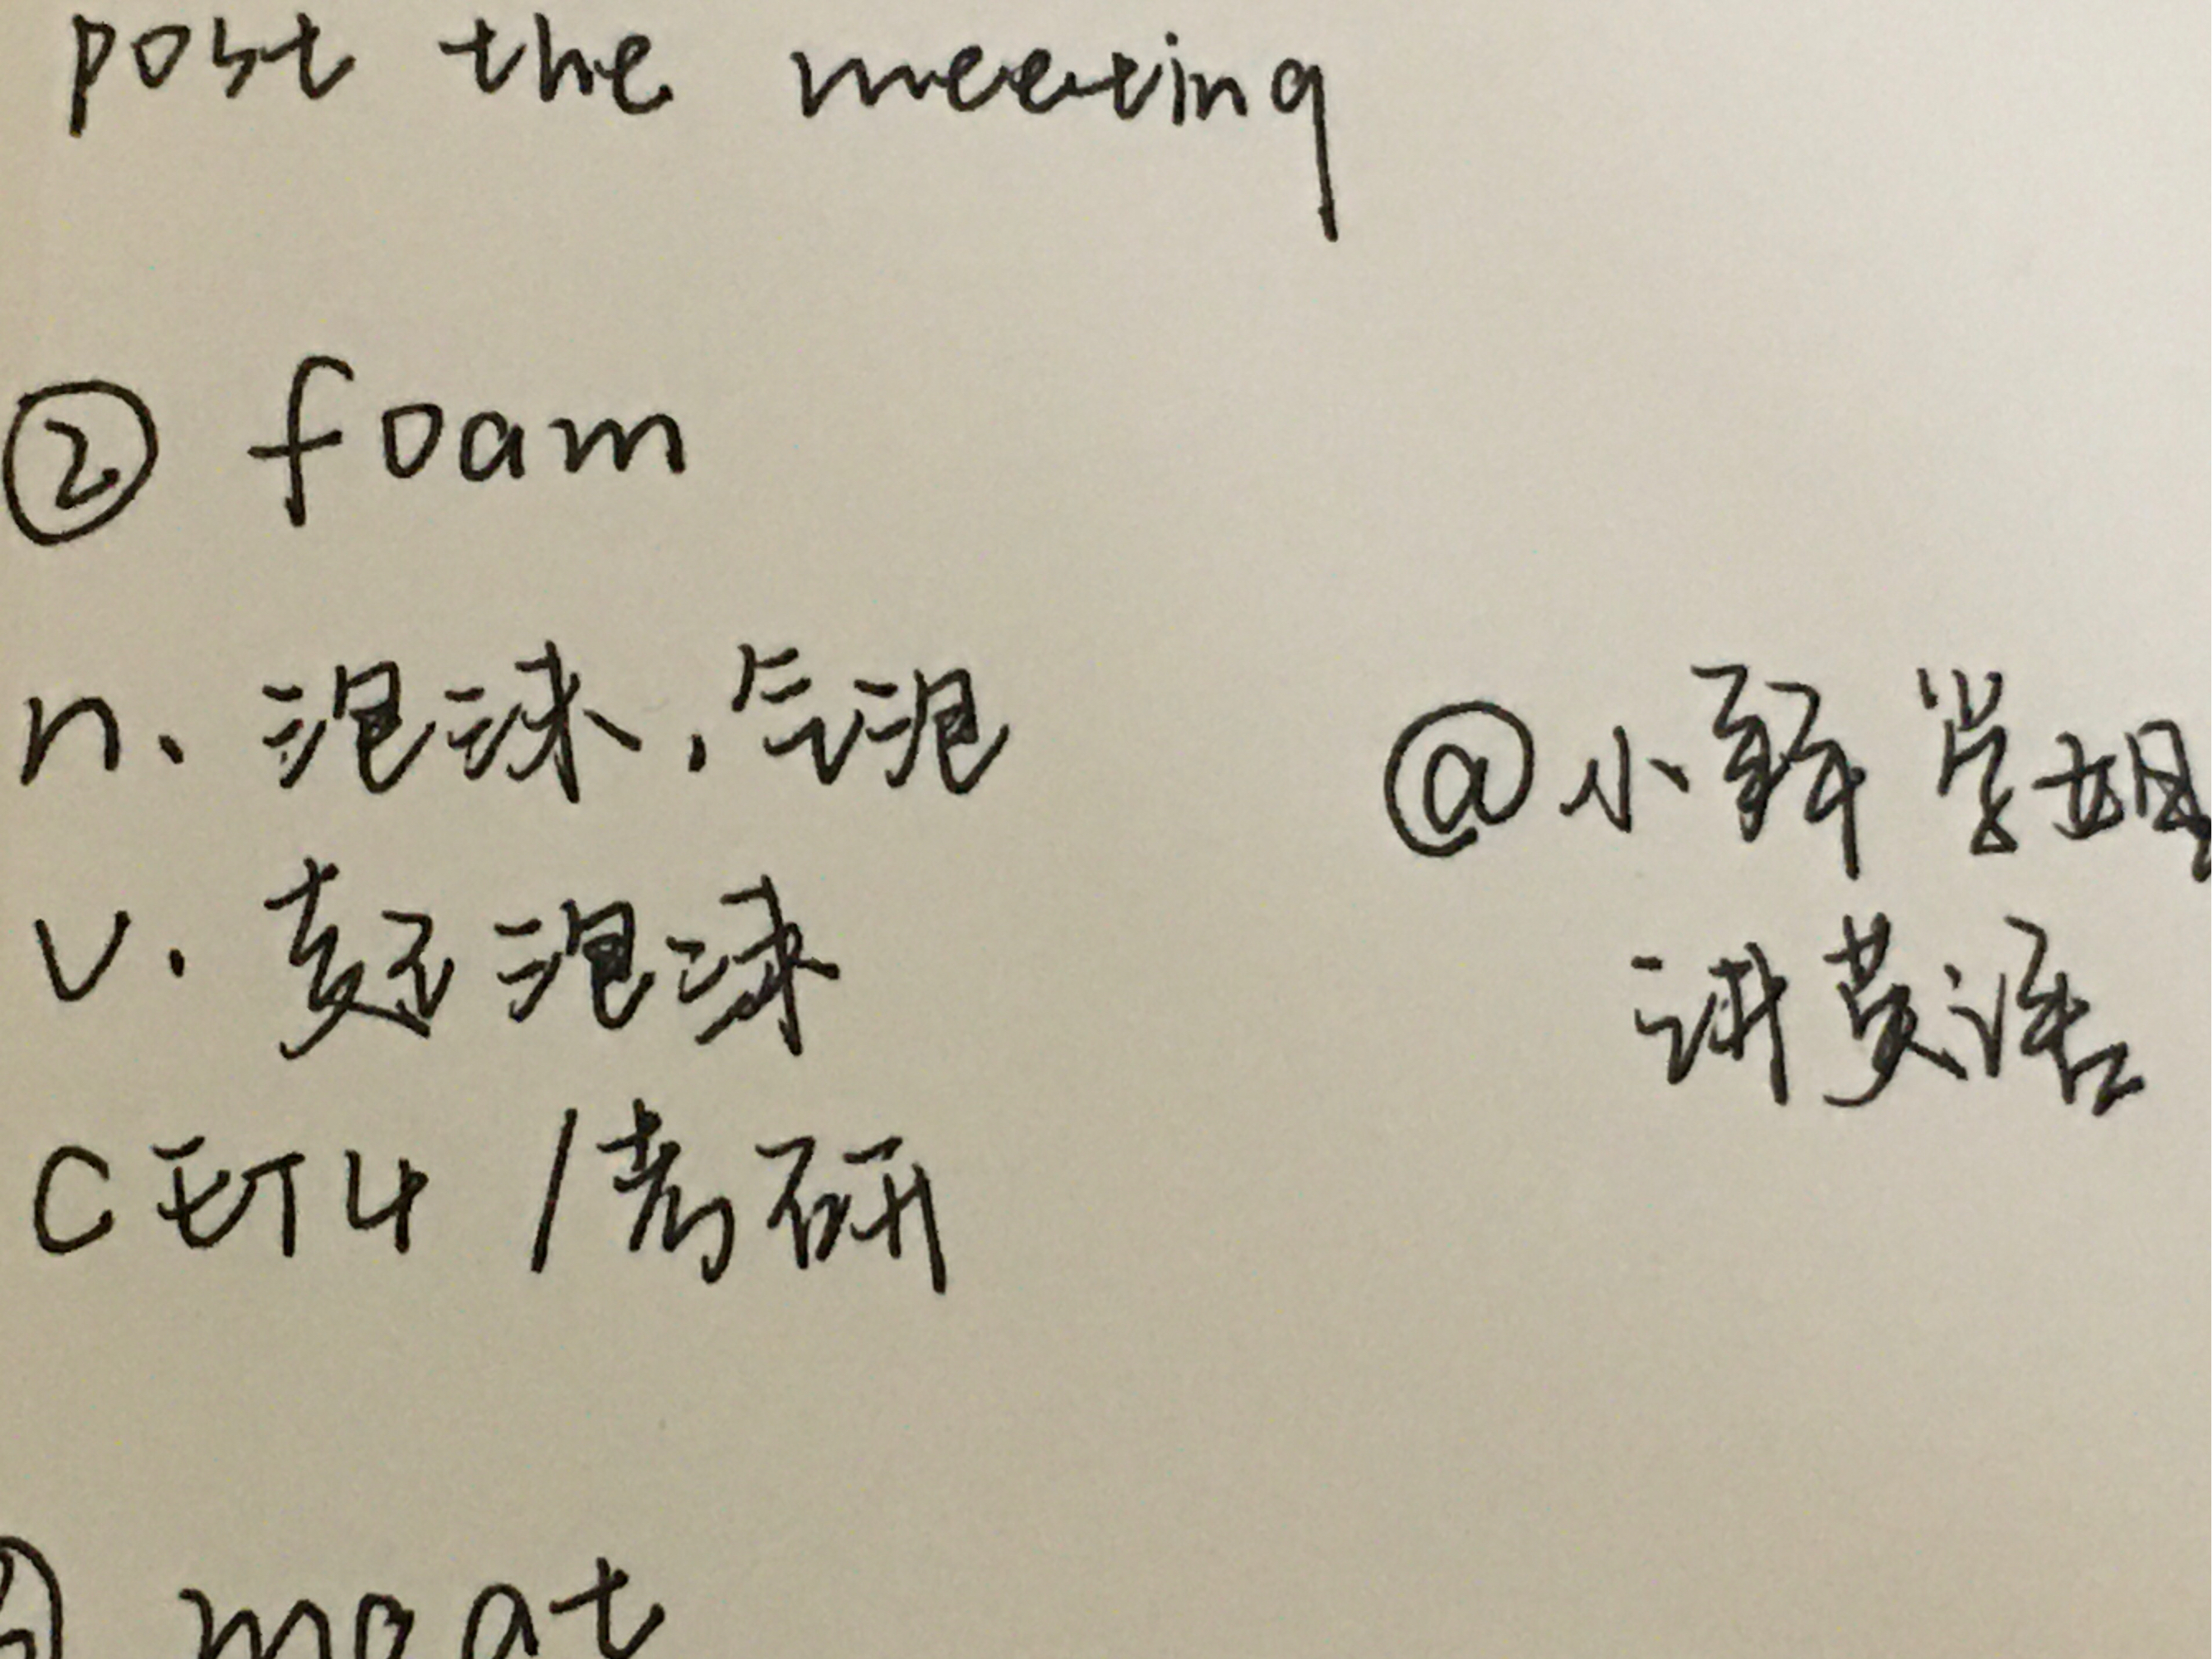 post the meeting
② foam
n. 泡沫,气泡
@小野学姐
v. 起泡沫
讲英语
CET4 /考研